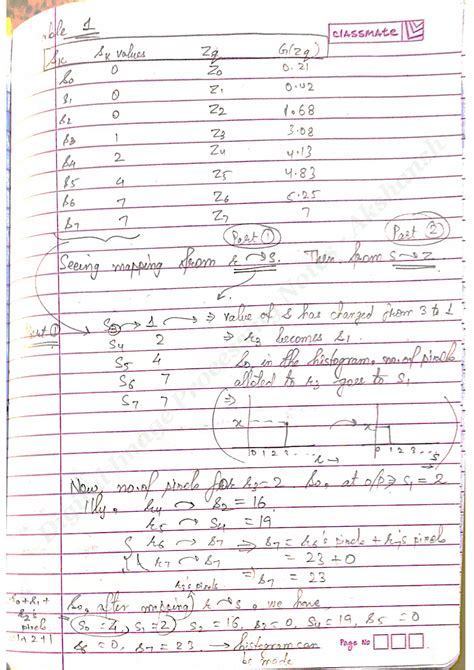 Table 1
CLASSMATE
Sk Sk values Zq G(Zq)
S0 0 Z0 0.21
S1 0 Z1 0.42
S2 0 Z2 1.68
S3 1 Z3 3.08
S4 2 Z4 4.13
S5 4 Z5 4.83
S6 7 Z6 5.25
S7 7 Z7 7
Part ① Part ②
Seeing mapping from r → s. Then from s → z
Part ① S3 → 1 → ⇒ value of s has changed from 3 to 1
S4 2 ⇒ r3 becomes s1
S5 4 So, in the histogram, no. of pixels
S6 7 alloted to r3 goes to s1
S7 7 ⇒
x x
0 1 2 3 ... 0 1 2 3 ...
r → s
Now, no. of pixels for r3 = 2. So, at o/p → s1 = 2
r4 → s2 = 16
r5 → s4 = 19
r6 → s7 ⇒ s7 = r6's pixels + r7's pixels
r7 → s7 = 23 + 0
⇒ s7 = 23
r0 + r1 + r2's pixels
So, after mapping r → s, we have
S0 = 4, S1 = 2, S2 = 16, S3 = 0, S4 = 19, S5 = 0
S6 = 0, S7 = 23 → histogram can
be made
Page No
Digital Image Processing Notes - Akshansh